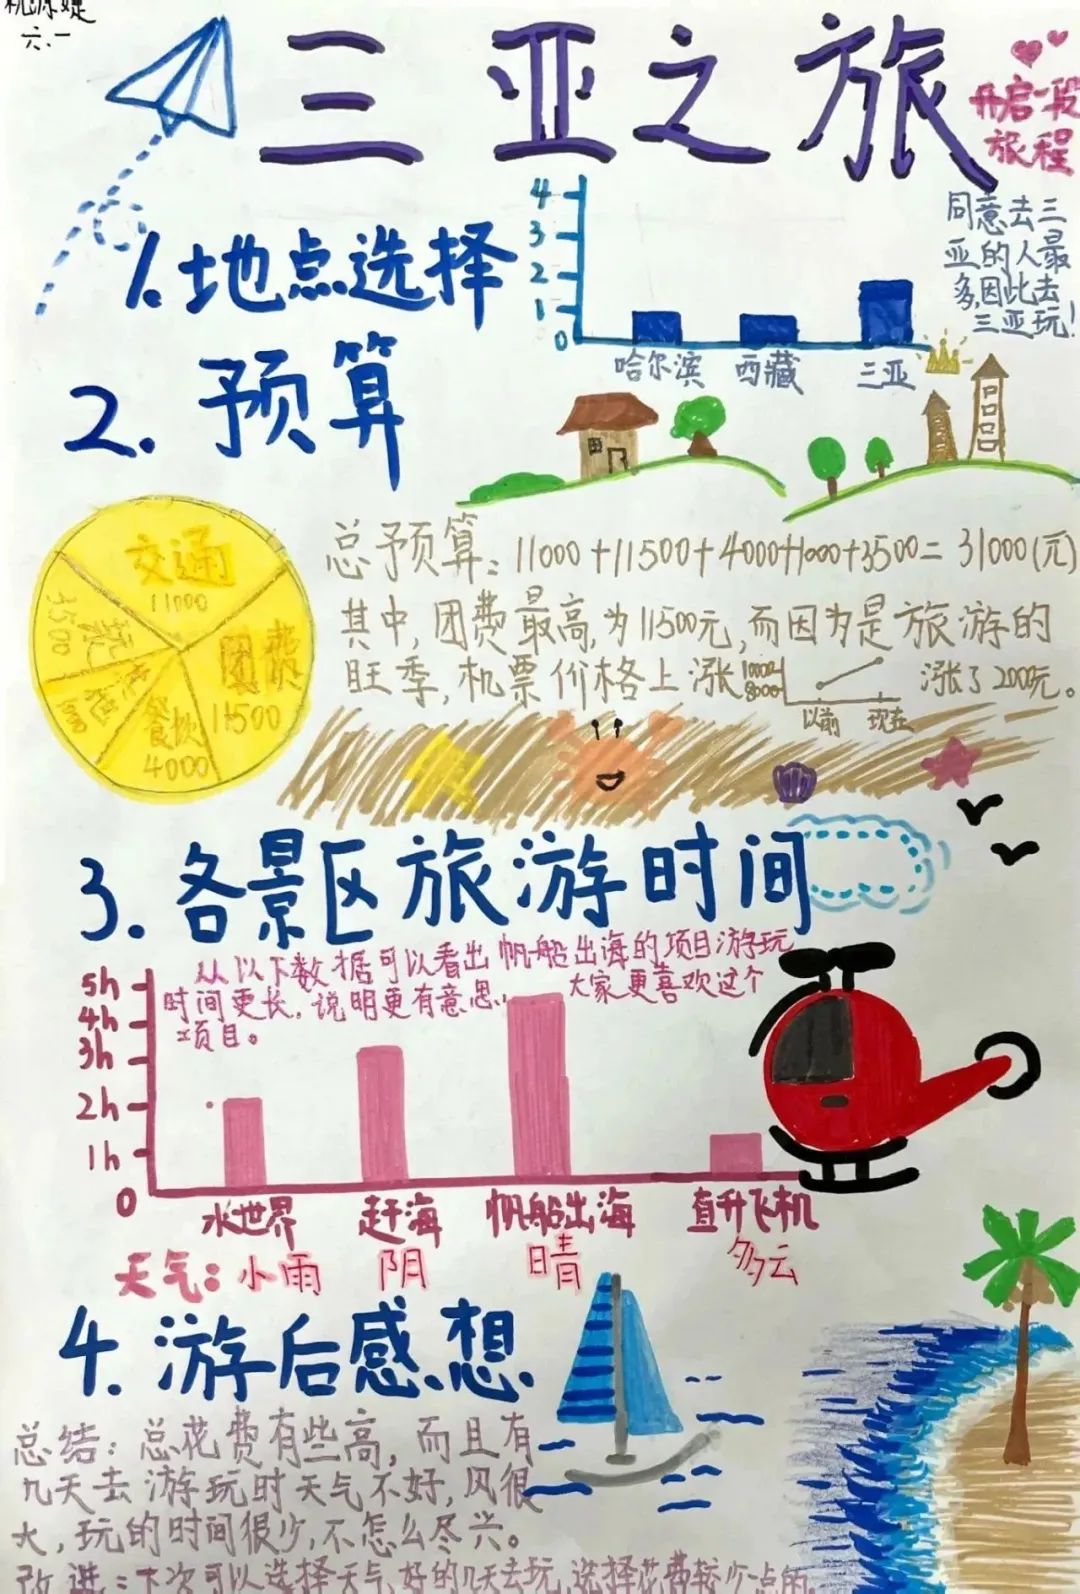 六.一
三亚之旅
开启一段
旅程
1.地点选择
4
3
2
1
0
哈尔滨 西藏 三亚
同意去三
亚的人最
多,因此去
三亚玩!
2.预算
交通
11000
团费
11500
餐饮
4000
1000
3500
总预算:11000+11500+4000+1000+3500=31000(元)
其中,团费最高,为11500元,而因为是旅游的
旺季,机票价格上涨
10000
8000
以前 现在
涨了2000元。
3.各景区旅游时间
从以下数据可以看出帆船出海的项目游玩
时间更长,说明更有意思,大家更喜欢这个
项目。
5h
4h
3h
2h
1h
0
水世界 赶海 帆船出海 直升飞机
天气:小雨 阴 晴 多云
4.游后感想
总结:总花费有些高,而且有
几天去游玩时天气不好,风很
大,玩的时间很少,不怎么尽兴。
改进:下次可以选择天气好的几天去玩,选择花费较少一点的